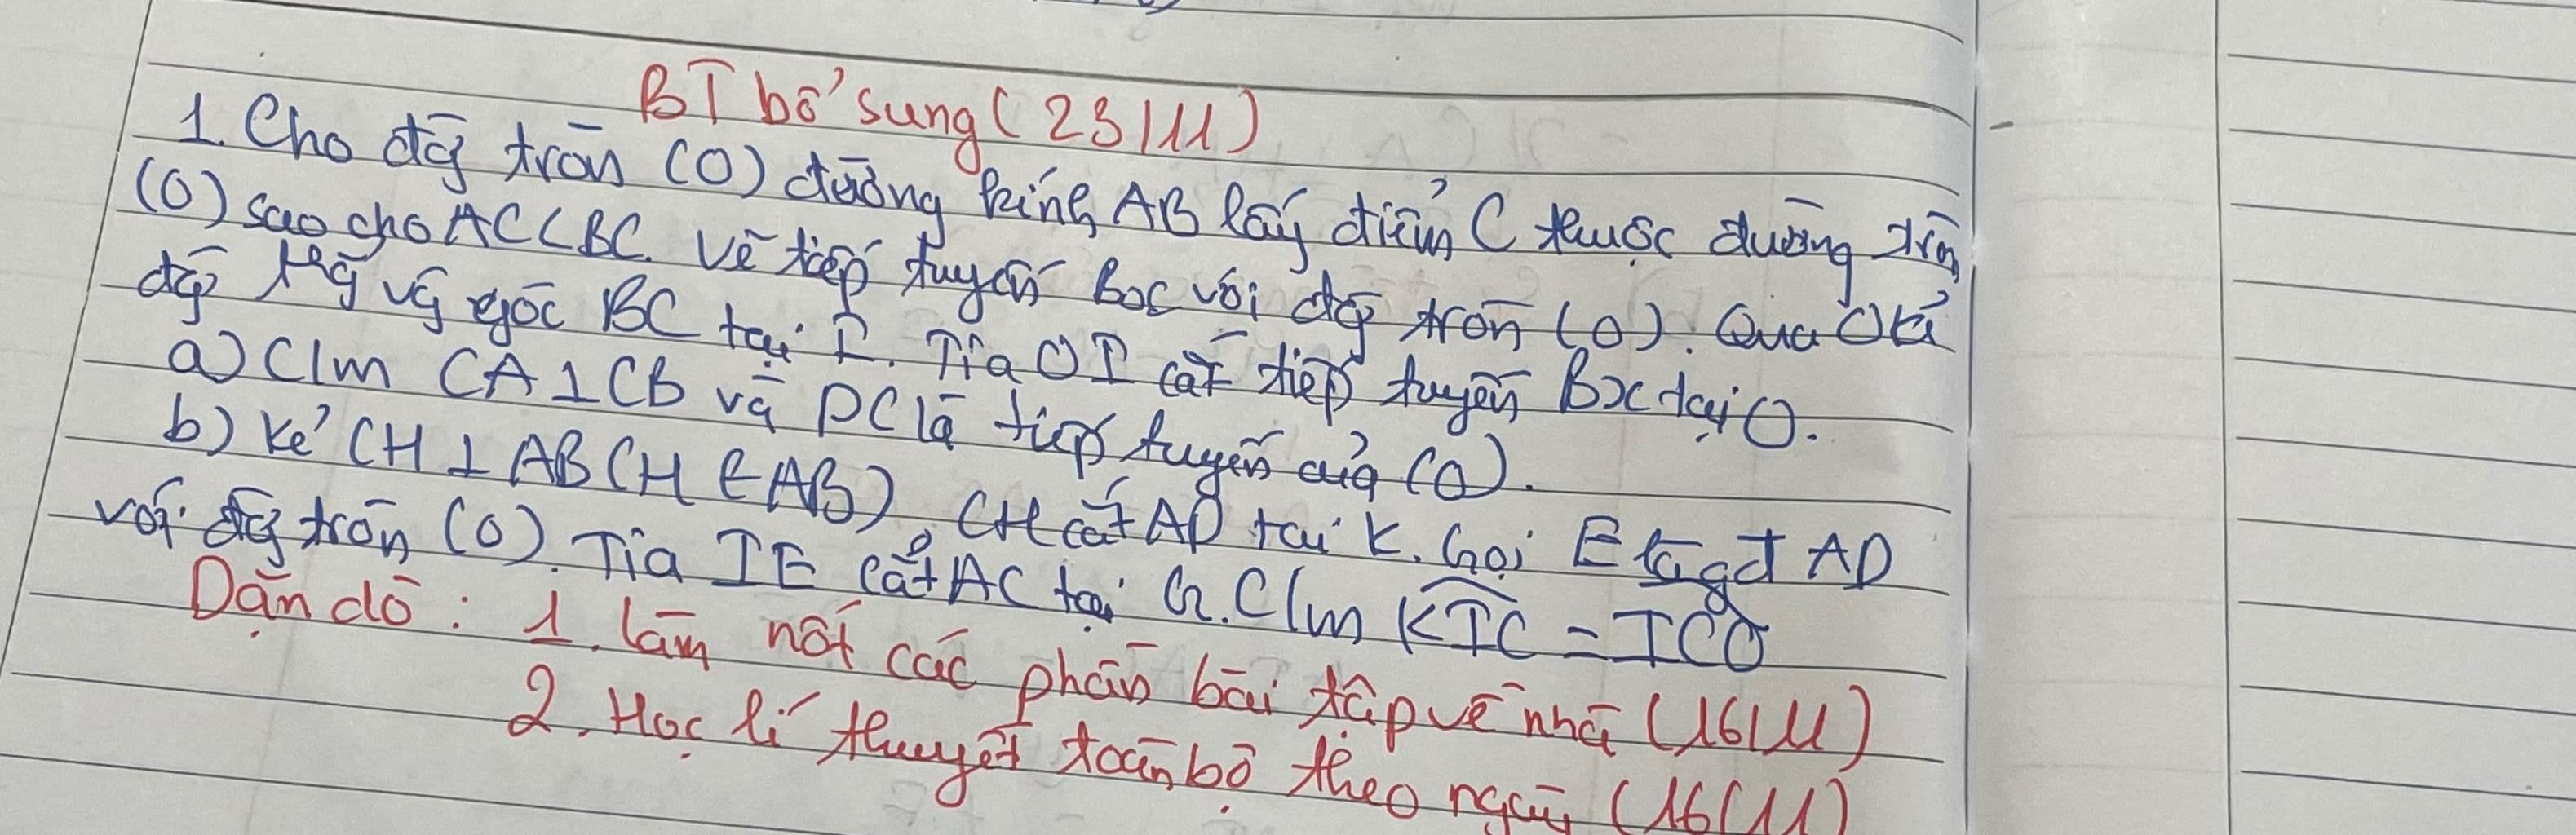 BT bổ sung (23/11)
1. Cho đg tròn (O) đường kính AB lấy điểm C thuộc đường tròn
(O) sao cho AC < BC. Vẽ tiếp tuyến Bx với đg tròn (O). Qua O kẻ
đg thg vg góc BC tại I. Tia OI cắt tiếp tuyến Bx tại O.
a) C/m CA ⊥ CB và DC là tiếp tuyến của (O).
b) Kẻ CH ⊥ AB (H ∈ AB), CH cắt AD tại K. Gọi E là gđ AD
với đg tròn (O). Tia IE cắt AC tại G. C/m KIC = ICO
Dặn dò: 1. Làm nốt các phần bài tập về nhà (16/11)
2. Học lí thuyết toàn bộ theo ngày (16/11)